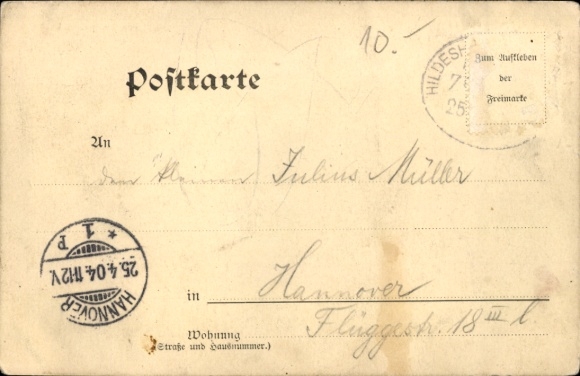 10.-
HILDESH
7
25
Zum Aufkleben
der
Freimarke
Postkarte
An
dem kleinen Julius Müller
HANNOVER
25.4.04.11-12V.
* 1 P
in Hannover
Wohnung Flüggestr. 18 III l
(Straße und Hausnummer.)